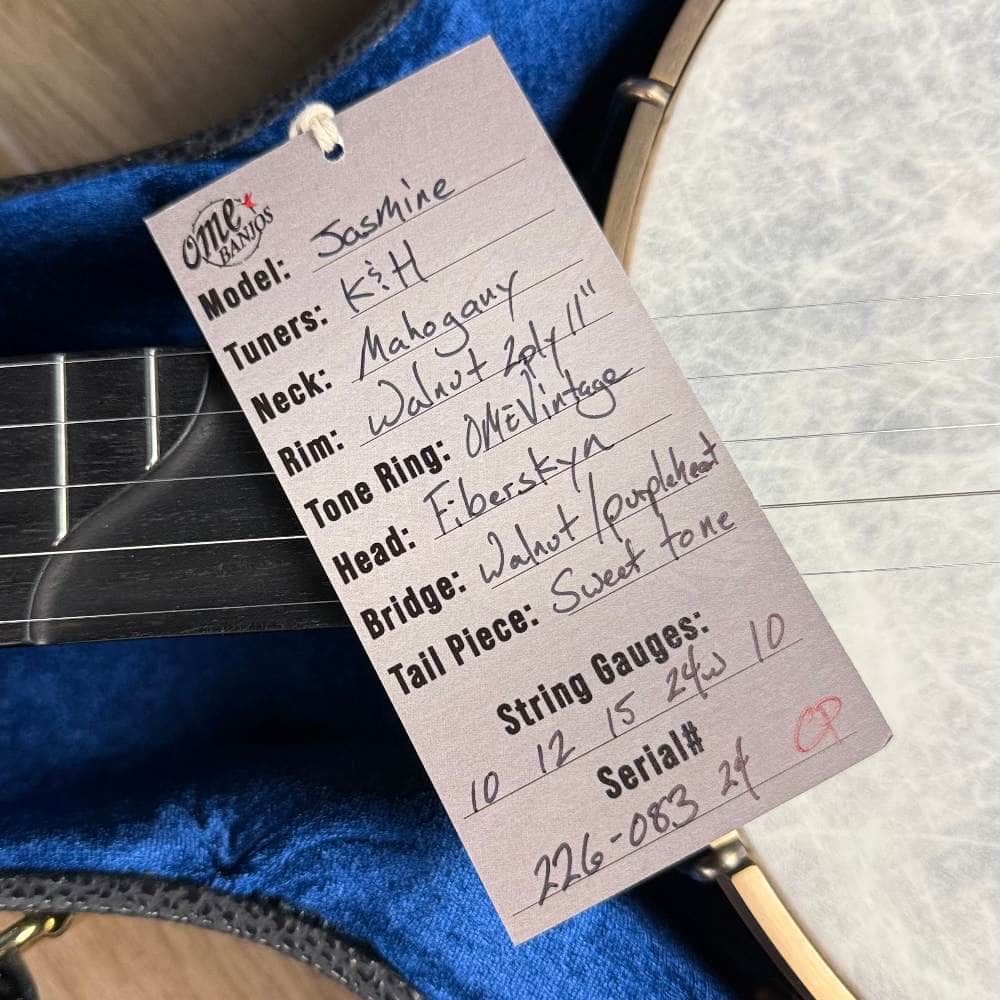 OME
BANJOS
Model: Jasmine
Tuners: K&H
Neck: Mahogany
Rim: Walnut 2ply 11"
Tone Ring: OME Vintage
Head: Fiberskyn
Bridge: Walnut/purpleheart
Tail Piece: Sweet tone
String Gauges:
10 12 15 24w 10
Serial#
226-083 24